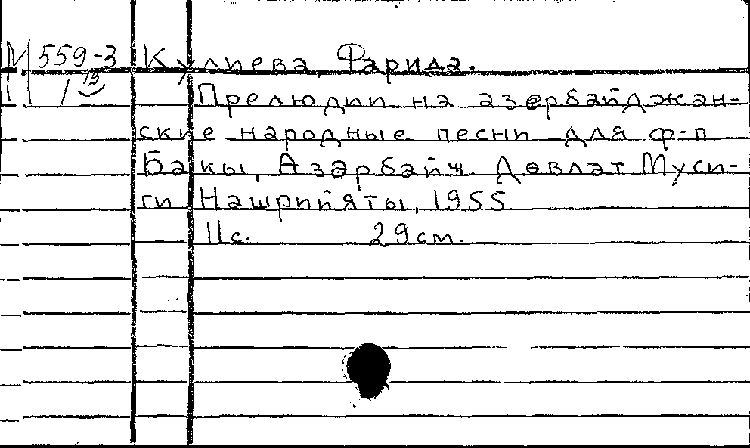 М 559-3 Кулиева, Фарида.
1 13
Прелюдии на азербайджан-
ские народные песни для ф-п
Бакы, Азәрбайҹ. Дөвләт Муси-
ги Нәшрийяты, 1955
11с. 29см.